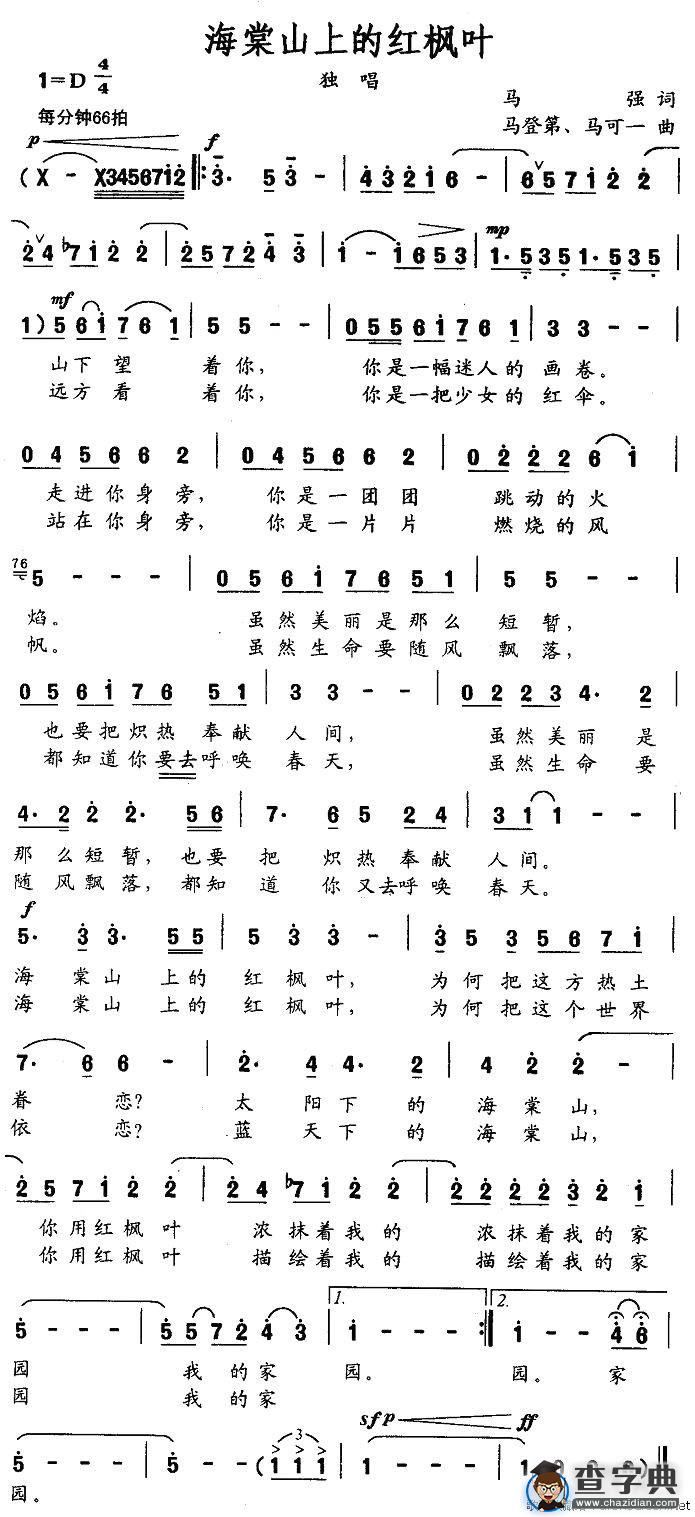 海棠山上的红枫叶
1=D 4/4 独唱
马强词
每分钟66拍
马登第、马可一曲
p f
(X - X34567i2 :3· 5 3 - | 4 3 2 i 6 - | 6 5 7 i 2 2
mp
2 4 ♭7 i 2 2 | 2 5 7 2 4 3 | i - i 6 5 3 | 1· 5 3 5 1· 5 3 5
mf
1) 5 6 i 7 6 1 | 5 5 - - | 0 5 5 6 i 7 6 1 | 3 3 - -
山下望着你, 你是一幅迷人的画卷。
远方看着你, 你是一把少女的红伞。
0 4 5 6 6 2 | 0 4 5 6 6 2 | 0 2 2 2 6 i
走进你身旁, 你是一团团 跳动的火
站在你身旁, 你是一片片 燃烧的风
76
5 - - - | 0 5 6 i 7 6 5 1 | 5 5 - -
焰。 虽然美丽是那么短暂,
帆。 虽然生命要随风飘落,
0 5 6 i 7 6 5 1 | 3 3 - - | 0 2 2 3 4· 2
也要把炽热奉献人间, 虽然美丽是
都知道你要去呼唤春天, 虽然生命要
4· 2 2 2· 5 6 | 7· 6 5 2 4 | 3 1 1 - -
那么短暂,也要把炽热奉献人间。
随风飘落,都知道你又去呼唤春天。
f
5· 3 3· 5 5 | 5 3 3 - | 3 5 3 5 6 7 i
海棠山上的红枫叶, 为何把这方热土
海棠山上的红枫叶, 为何把这个世界
7· 6 6 - | 2· 4 4· 2 | 4 2 2 -
眷恋? 太阳下的海棠山,
依恋? 蓝天下的海棠山,
2 5 7 i 2 2 | 2 4 ♭7 i 2 2 | 2 2 2 2 3 2 i
你用红枫叶 浓抹着我的 浓抹着我的家
你用红枫叶 描绘着我的 描绘着我的家
1. 2.
5 - - - | 5 5 7 2 4 3 | i - - - :| i - - 4 6
园 我的家园。 园。家
园 我的家
sfp ff
5 - - - | 5 - - (i i i | 1 - - - | 1 0 0 0) ‖
园。
查字典
www.chazidian.com